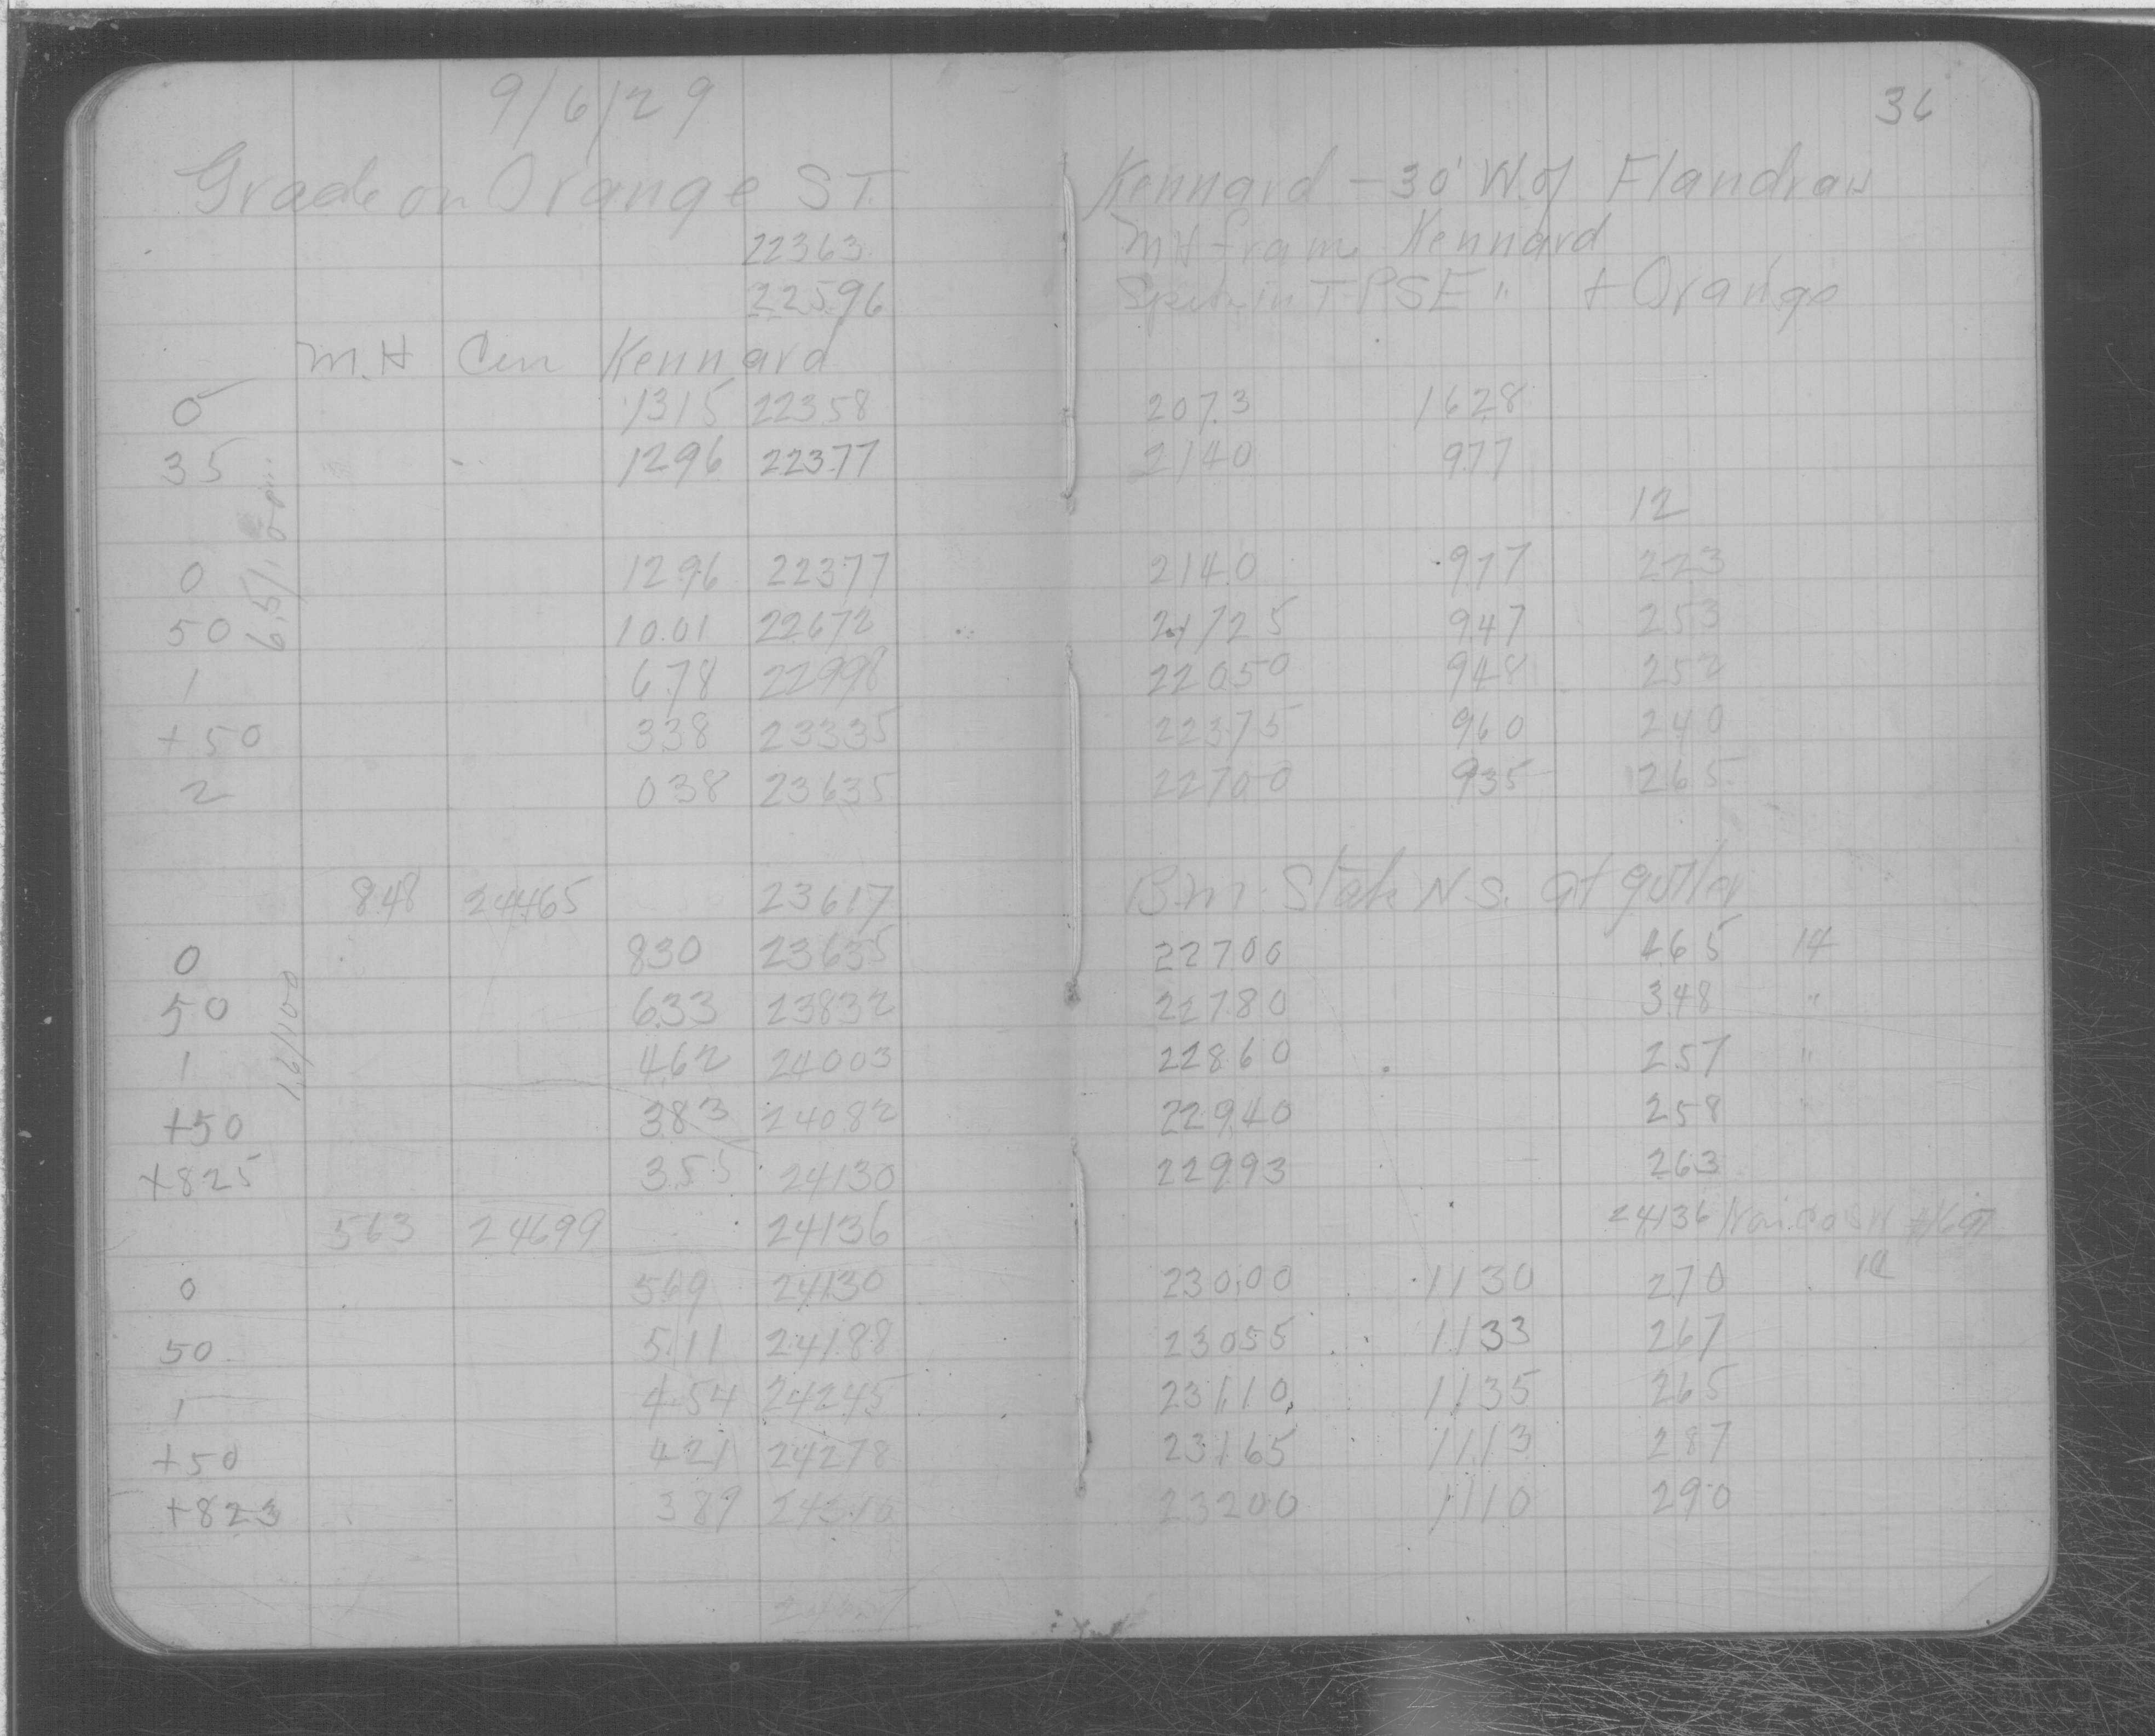 9/6/29 36
Grade on Orange ST. Kennard - 30' W. of Flandrau
22363 MH frame Kennard
22596 Spike in T P S E " + Orange
M.H Cen Kennard
0 1315 22358 2073 1628
35 1296 22377 2140 977
12
0 1296 22377 2140 977 223
50 10.01 22672 21725 947 253
1 678 22998 22050 948 252
+50 338 23335 22375 960 240
2 038 23635 22700 935 265
848 24465 23617 B.M. Stake N.S. at gutter
0 830 23635 22700 465 14
50 633 23832 22780 348 "
1 462 24003 22860 257 "
+50 383 24082 22940 258 "
+825 355 24130 22993 263
563 24699 24136 24136
0 569 24130 230.00 1130 270 12
50 511 24188 23055 1133 267
1 454 24245 23110 1135 265
+50 421 24278 23165 1113 287
+823 389 24310 23200 1110 290
6.5/100
1.6/100